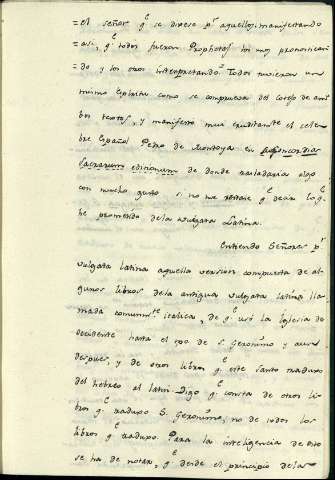 =el señor q.e se dixese p.r aquellos: manifestando
asi, q.e todos fueron Prophetas los unos pronostican=
do y los otros interpretando. Todos tuvieron un
mismo Espiritu como se comprueva del Cotejo de am=
bos textos, y manifesto mui eruditam.te el cele=
bre Español Pedro de Montoya en
sacrarum editionum de donde trasladaria algo
con mucho gusto si no me restase q.e decir lo q.e
he prometido de la vulgata Latina.
Entiendo Señores p.r
vulgata latina aquella version compuesta de al=
gunos libros de la antigua vulgata latina lla=
mada comunm.te italica, de q.e usó la Iglesia de
occidente hasta el tpo de S. Geronimo y aun
despues, y de otros libros q.e este santo traduxo
del hebreo al latin. Digo q.e consta de otros li=
bros q.e traduxo S. Geronimo, no de todos los
libros q.e traduxo. Para la inteligencia de esto
se ha de notar, q.e desde el principio de la